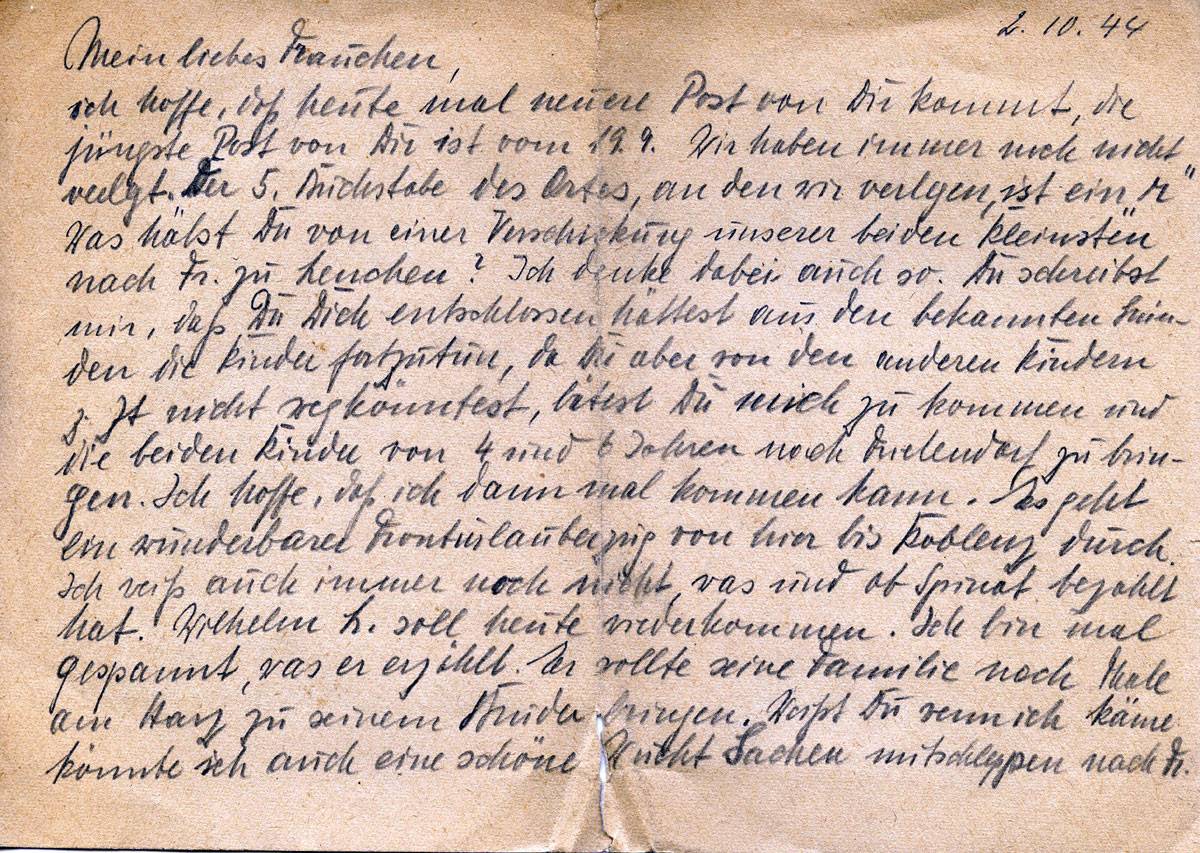 2. 10. 44
Mein liebes Frauchen,
ich hoffe, daß heute mal neuere Post von Dir kommt, die
jüngste Post von Dir ist vom 19. 9. Wir haben immer noch nicht
verlgt. Der 5. Buchstabe des Ortes, an den wir verlgen, ist ein „r"
Was hälst Du von einer Verschickung unserer beiden Kleinsten
nach Fr. zu Lenchen? Ich denke dabei auch so. Du schreibst
mir, daß Du Dich entschlossen hättest aus den bekannten Grün-
den die Kinder fortzutun, da Du aber von den anderen Kindern
z. Zt nicht wegkönntest, bätest Du mich zu kommen und
die beiden Kinder von 4 und 6 Jahren nach zu brin-
gen. Ich hoffe, daß ich dann mal kommen kann. Es geht
ein wunderbarer Fronturlauberzug von hier bis Koblenz durch.
Ich weiß auch immer noch nicht, was und ob Spinat bezahlt
hat. Wilhelm L. soll heute wiederkommen. Ich bin mal
gespannt, was er erzählt. Er wollte seine Familie nach Thale
am Harz zu seinem Bruder bringen. Weißt Du wenn ich käme
könnte ich auch eine schöne Wucht Sachen mitschleppen nach Fr.